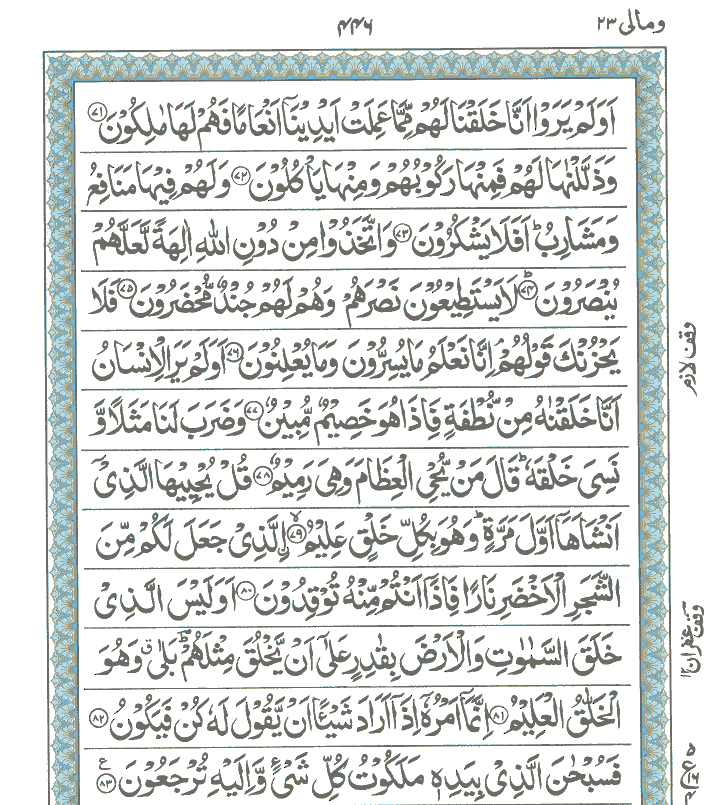 ومالی ٢٣
٤٤٦
اَوَلَمْ يَرَوْا اَنَّا خَلَقْنَا لَهُمْ مِّمَّا عَمِلَتْ اَيْدِيْنَاۤ اَنْعَامًا فَهُمْ لَهَا مٰلِكُوْنَ ﴿٧١﴾
وَذَلَّلْنٰهَا لَهُمْ فَمِنْهَا رَكُوْبُهُمْ وَمِنْهَا يَاْكُلُوْنَ ﴿٧٢﴾ وَلَهُمْ فِيْهَا مَنَافِعُ
وَمَشَارِبُ ؕ اَفَلَا يَشْكُرُوْنَ ﴿٧٣﴾ وَاتَّخَذُوْا مِنْ دُوْنِ اللّٰهِ اٰلِهَةً لَّعَلَّهُمْ
يُنْصَرُوْنَ ؕ ﴿٧٤﴾ لَا يَسْتَطِيْعُوْنَ نَصْرَهُمْ وَهُمْ لَهُمْ جُنْدٌ مُّحْضَرُوْنَ ﴿٧٥﴾ فَلَا
يَحْزُنْكَ قَوْلُهُمْ ۘ اِنَّا نَعْلَمُ مَا يُسِرُّوْنَ وَمَا يُعْلِنُوْنَ ﴿٧٦﴾ اَوَلَمْ يَرَ الْاِنْسَانُ
اَنَّا خَلَقْنٰهُ مِنْ نُّطْفَةٍ فَاِذَا هُوَ خَصِيْمٌ مُّبِيْنٌ ﴿٧٧﴾ وَضَرَبَ لَنَا مَثَلًا وَّ
نَسِيَ خَلْقَهٗ ؕ قَالَ مَنْ يُّحْيِ الْعِظَامَ وَهِيَ رَمِيْمٌ ﴿٧٨﴾ قُلْ يُحْيِيْهَا الَّذِيْۤ
اَنْشَاَهَاۤ اَوَّلَ مَرَّةٍ ؕ وَهُوَ بِكُلِّ خَلْقٍ عَلِيْمُ ۙ ﴿٧٩﴾ اۨلَّذِيْ جَعَلَ لَكُمْ مِّنَ
الشَّجَرِ الْاَخْضَرِ نَارًا فَاِذَاۤ اَنْتُمْ مِّنْهُ تُوْقِدُوْنَ ﴿٨٠﴾ اَوَلَيْسَ الَّذِيْ
خَلَقَ السَّمٰوٰتِ وَالْاَرْضَ بِقٰدِرٍ عَلٰۤى اَنْ يَّخْلُقَ مِثْلَهُمْ ؕ بَلٰى ۗ وَهُوَ
الْخَلّٰقُ الْعَلِيْمُ ﴿٨١﴾ اِنَّمَاۤ اَمْرُهٗۤ اِذَاۤ اَرَادَ شَيْـًٔا اَنْ يَّقُوْلَ لَهٗ كُنْ فَيَكُوْنُ ﴿٨٢﴾
فَسُبْحٰنَ الَّذِيْ بِيَدِهٖ مَلَكُوْتُ كُلِّ شَيْءٍ وَّاِلَيْهِ تُرْجَعُوْنَ ﴿٨٣﴾ ع
وقف لازم
وقف غفران